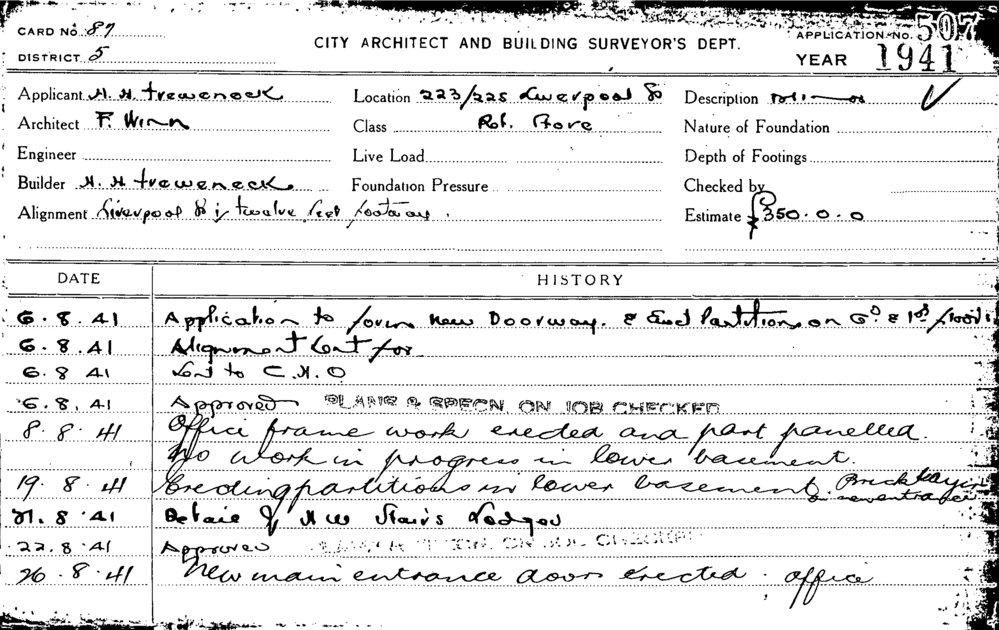 CARD No 87
DISTRICT 5
CITY ARCHITECT AND BUILDING SURVEYOR'S DEPT.
APPLICATION No. 507
YEAR 1941
Applicant H. H. Treweneck Location 223/225 Liverpool St Description
Architect F. Winn Class Ret. Store Nature of Foundation
Engineer Live Load Depth of Footings
Builder H. H. Treweneck Foundation Pressure Checked by
Alignment Liverpool St is twelve feet footway. Estimate £350.0.0
DATE HISTORY
6.8.41 Application to form New Doorway. & Erect Partitions on Gd & 1st floors
6.8.41 Alignment Sent for
6.8.41 Sent to C.H.O
6.8.41 Approved PLANS & SPECN. ON JOB CHECKED
8.8.41 Office frame work erected and part panelled.
No work in progress in lower basement.
19.8.41 Erecting partitions in lower basement. Bricklaying new entrance
21.8.41 Detail of New Stairs Lodged
22.8.41 Approved ON JOB CHECKED
26.8.41 New main entrance doors erected. Office